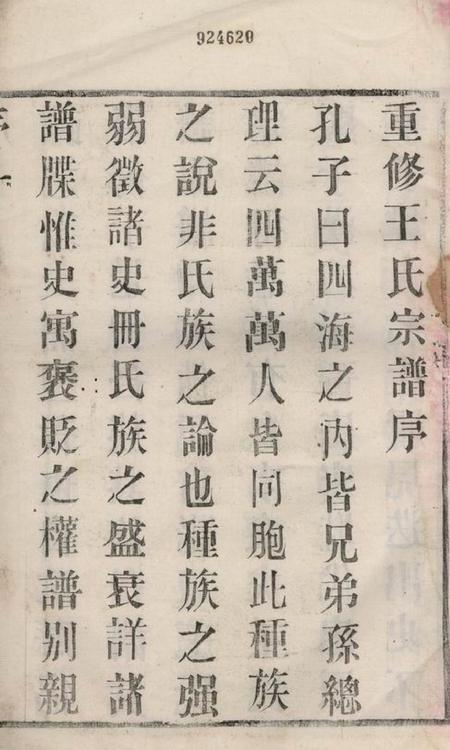 924620
重修王氏宗譜序
孔子曰四海之内皆兄弟孫總
理云四萬萬人皆同胞此種族
之說非氏族之論也種族之强
弱徵諸史冊氏族之盛衰詳諸
譜牒惟史寓褒貶之權譜别親
序
一